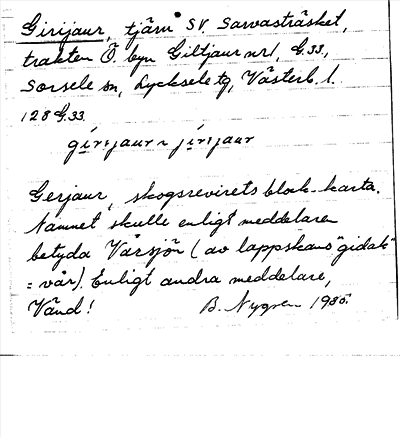 Girijaur, tjärn SV. Sarvasträsket,
trakten Ö. byn Giltjaur nr 1, G.33,
Sorsele sn, Lycksele tg, Västerb. l.
128 G.33.
girijaur ~ jirijaur
Gerjaur, skogsrevirets block-karta.
Namnet skulle enligt meddelaren
betyda Vårsjön (av lappskans "gidak"
= vår). Enligt andra meddelare,
Vänd! B. Nygren 1935.